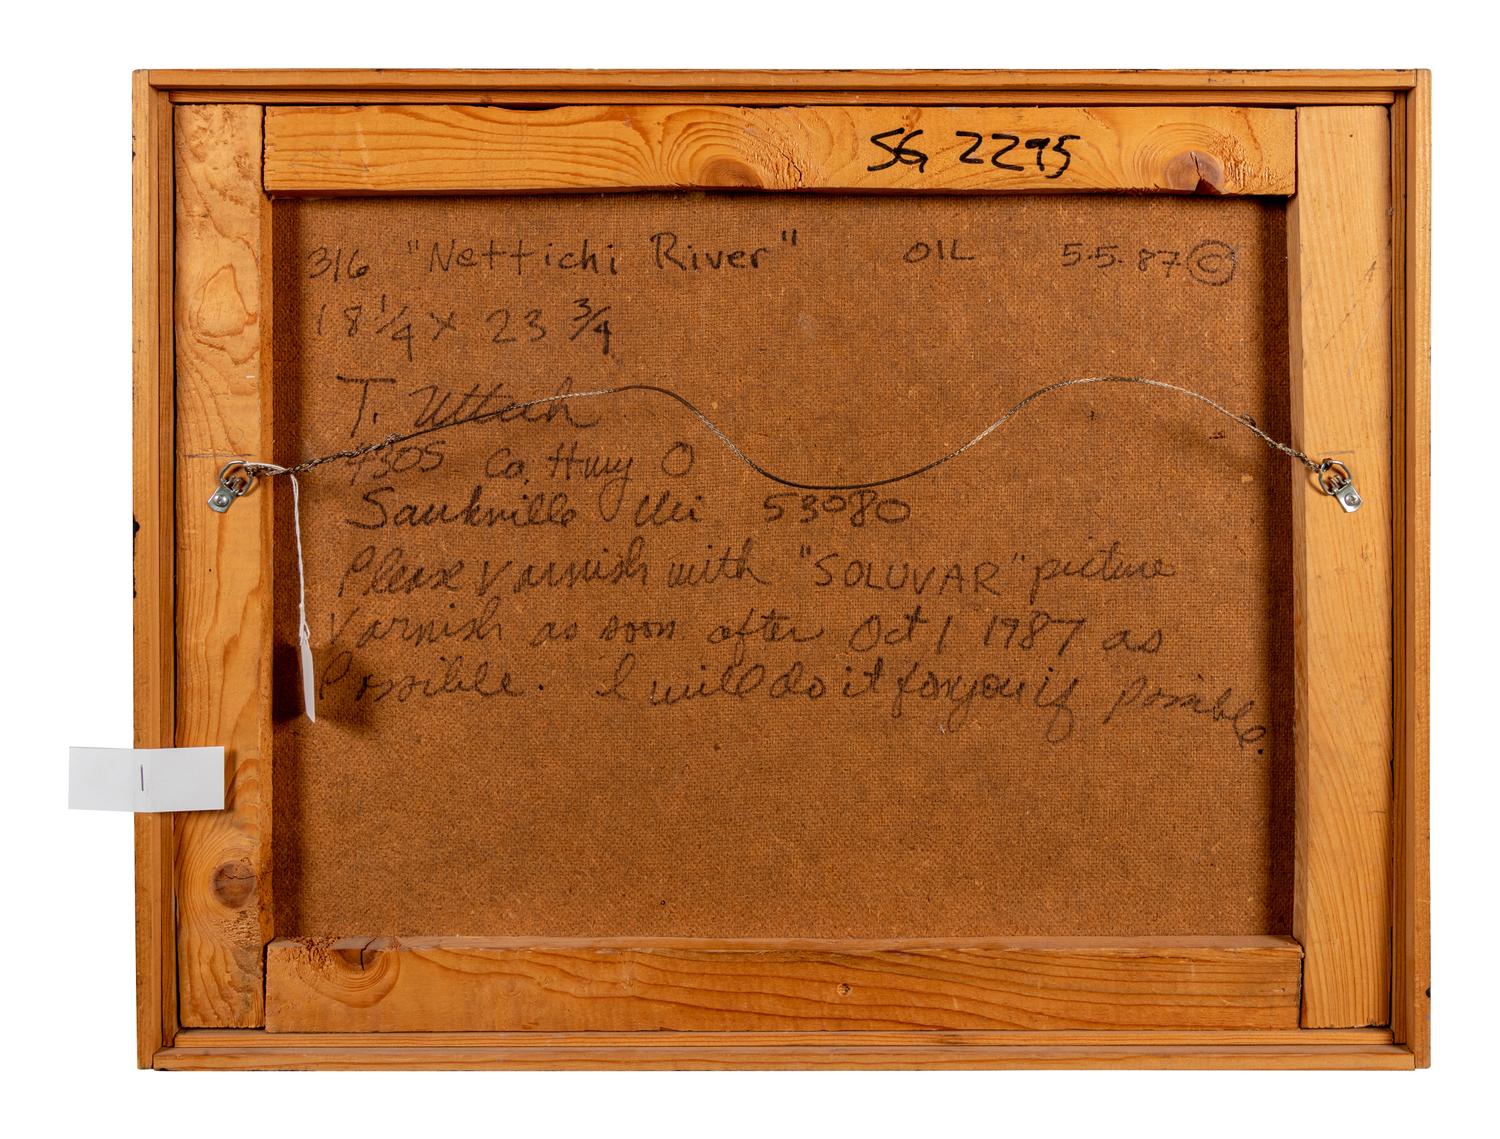 SG 2295
316 "Nettichi River" OIL 5.5.87 ©
18 1/4 x 23 3/4
T. Uttech
4305 Co. Hwy O
Saukville Wi 53080
Please Varnish with "SOLUVAR" picture
Varnish as soon after Oct 1 1987 as
Possible. I will do it for you if possible.